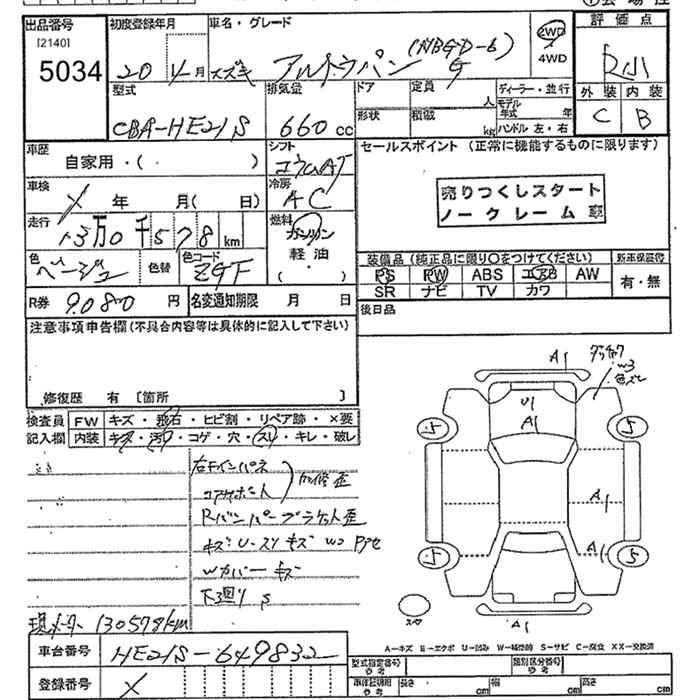 出品番号
[2140]
5034
初度登録年月
20年4月
車名・グレード
スズキ アルトラパン G
(NBGD-6)
2WD
4WD
評価点
R小
外装 内装
C B
型式
CBA-HE21S
排気量
660cc
ドア
形状
定員 人
積載 kg
ディーラー・並行
モデル年式 年
ハンドル 左・右
車歴
自家用・( )
シフト
コラムAT
車検
X 年 月( 日)
冷房
AC
走行
13万0千578km
燃料
ガソリン
軽油
( ・ )
色
ベージュ
色替
色コード
ZGF
R券 9080円
名変通知期限 月 日
セールスポイント (正常に機能するものに限ります)
売りつくしスタート
ノークレーム車
装備品 (純正品に限り〇をつけてください)
新車保証書
PS PW ABS エアB AW
SR ナビ TV カワ
有・無
後日品
注意事項申告欄(不具合内容等は具体的に記入して下さい)
修復歴 有 [箇所 ]
検査員記入欄
FW キズ・飛石・ヒビ割・リペア跡・×要
内装 キズ・汚レ・コゲ・穴・スレ・キレ・破レ
右Fインパネ
コアサポート
加修歪
Rバンパーブラケット歪
キズ U・スリキズ
Wカバーキズ
下廻り S
現メーター 130578km
A1
色ズレ
W3
U1
A1
.5
5
A1
A1
.5
5
スペア
A1
A-キズ E-エクボ U-凹み W-補修跡 S-サビ C-腐食 XX-交換済
車台番号 HE21S-649832
登録番号 X
型式指定番号
参考
類別区分番号
車庫証明用
参考
長さ cm
幅 cm
高さ cm